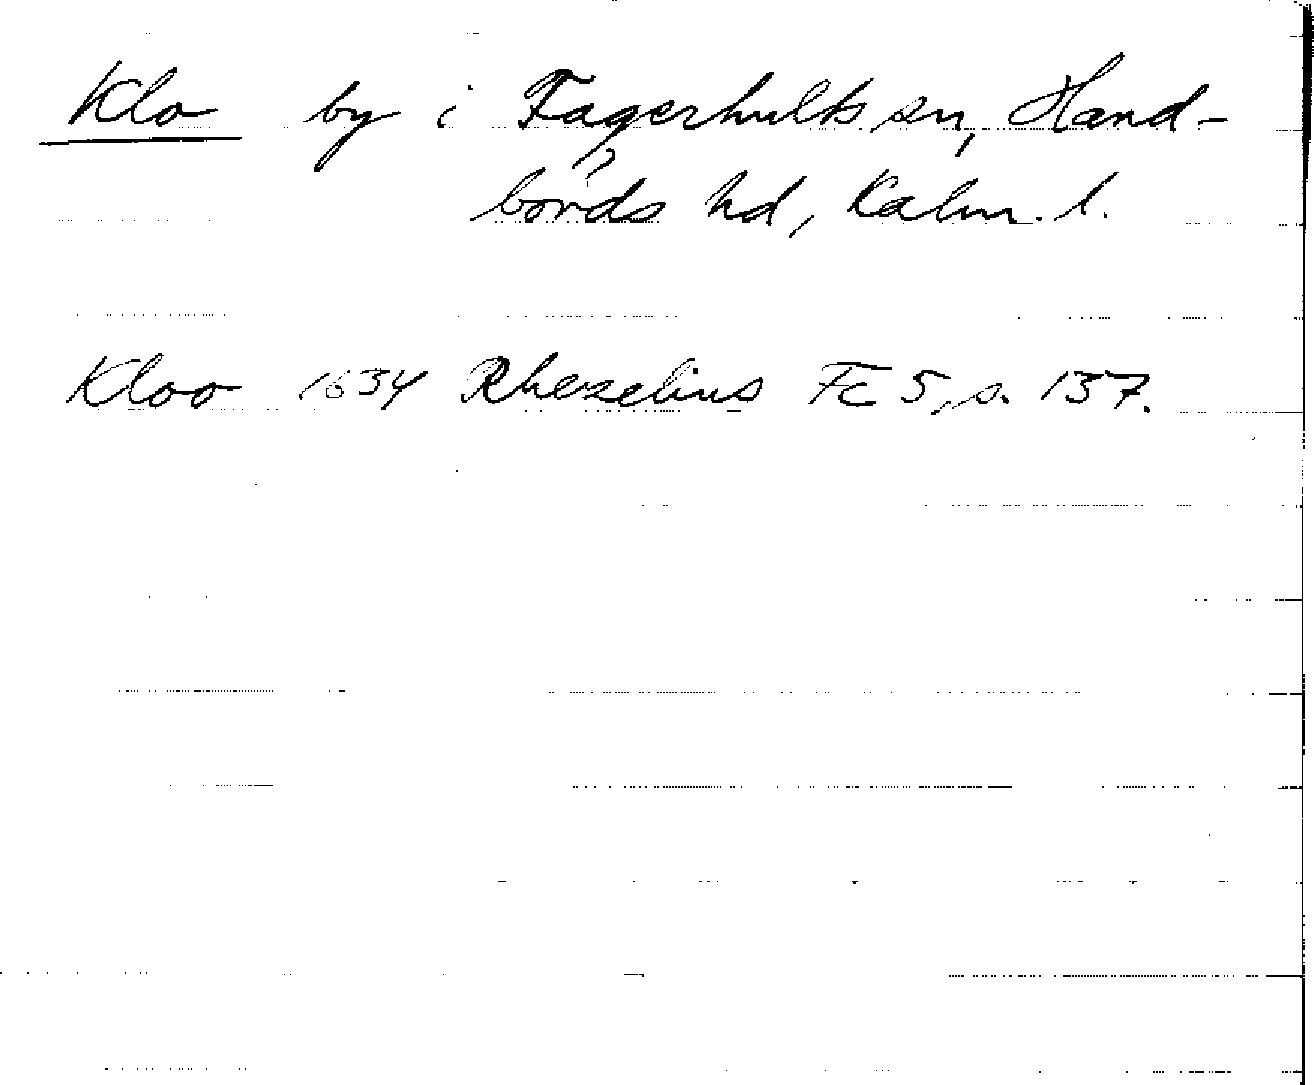 Klo by i Fagerhults sn, Hand-
börds hd, Kalm. l.
Kloo 1634 Rhezelius Fc 5, s. 137.